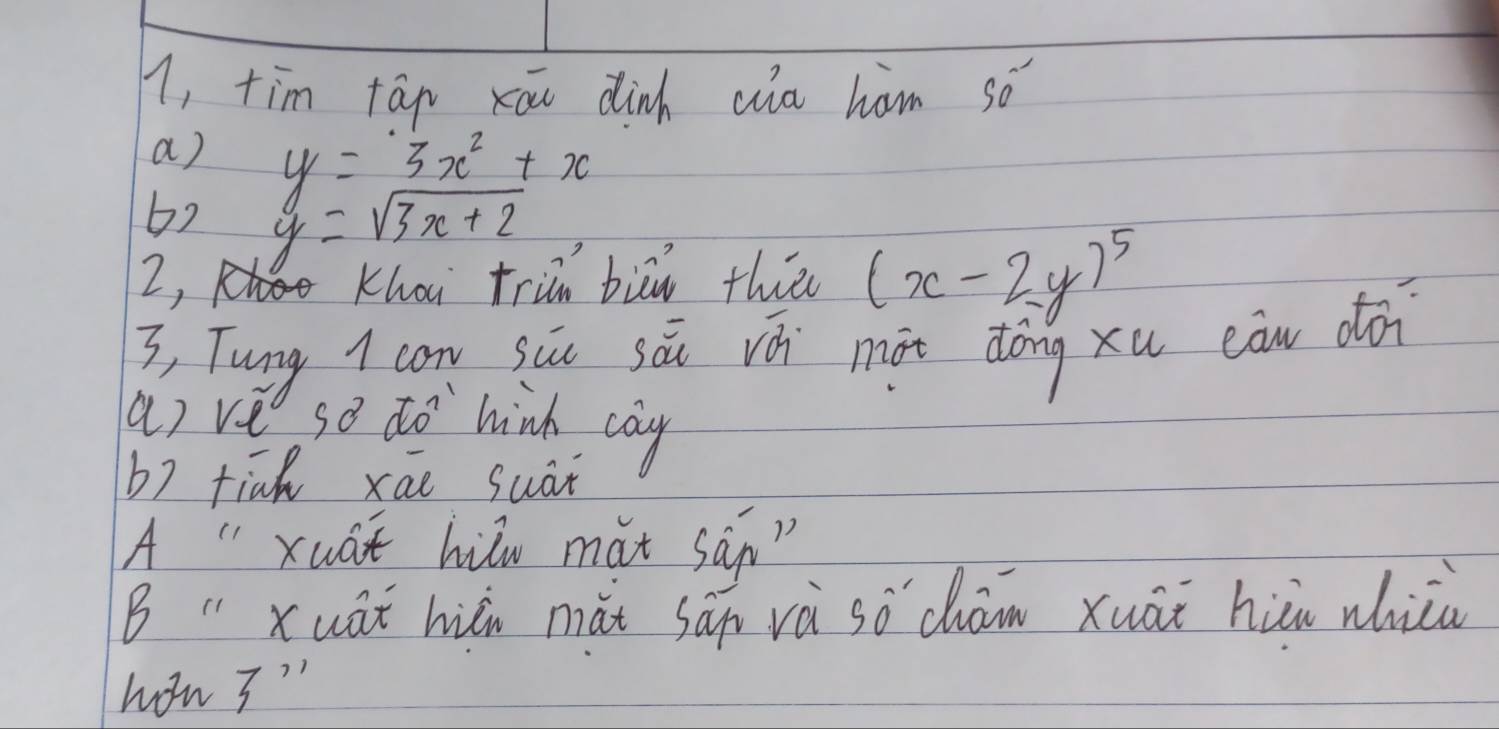 1, tìm tập xác định của hàm số
a) y = 3x² + x
b) y = √3x + 2
2, Khai triển biểu thức (x - 2y)⁵
3, Tung 1 con súc sắc với một đồng xu cân đối
a) vẽ sơ đồ hình cây
b) tính xác suất
A "xuất hiện mặt sấp"
B "xuất hiện mặt sấp và số chấm xuất hiện nhiều
hơn 3"